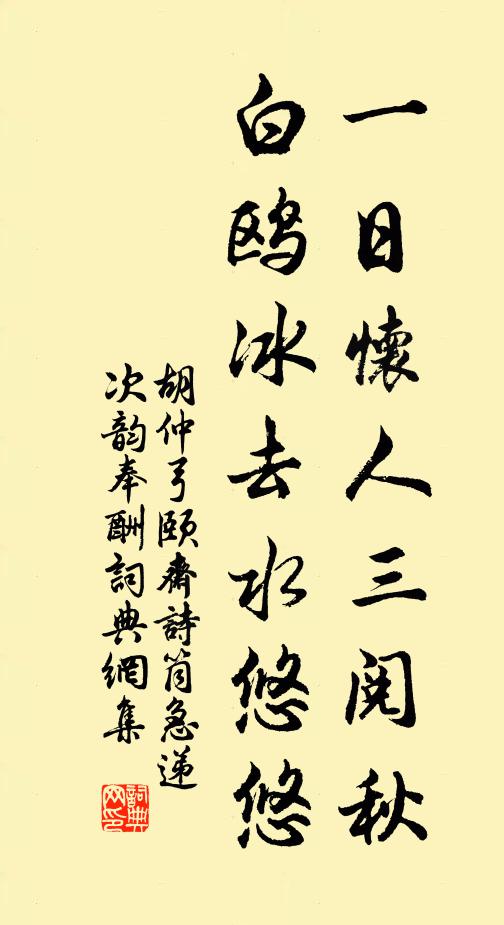 一日懷人三閱秋
白鷗冰去水悠悠
胡仲弓頤齋詩筒急遞
次韵奉酬詞典網集
詞典網印